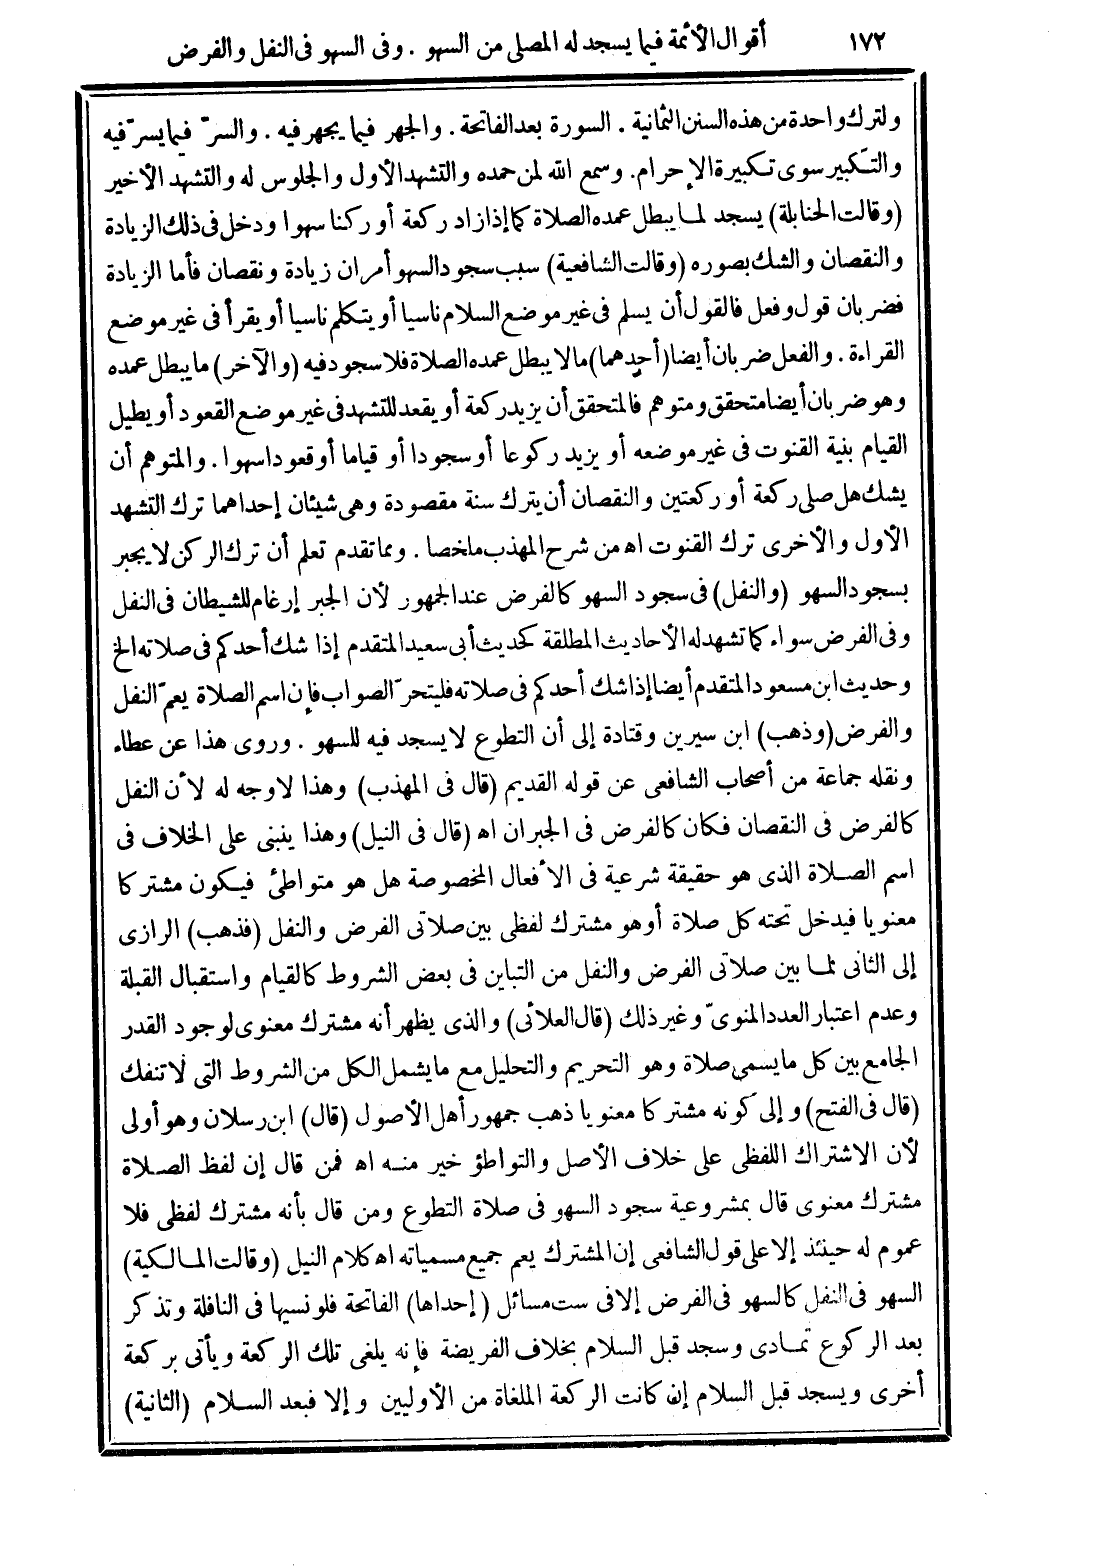 ١٧٢ أقوال الأئمة فيما يسجد له المصلى من السهو . وفى السهو فى النفل والفرض
ولترك واحدة من هذه السنن الثمانية . السورة بعد الفاتحة . والجهر فيما يجهر فيه . والسرّ فيما يسرّ فيه
والتكبير سوى تكبيرة الإحرام. وسمع الله لمن حمده والتشهد الأول والجلوس له والتشهد الأخير
(وقالت الحنابلة) يسجد لما يبطل عمده الصلاة كما إذا زاد ركعة أو ركنا سهوا ودخل فى ذلك الزيادة
والنقصان والشك بصوره (وقالت الشافعية) سبب سجود السهو أمران زيادة ونقصان فأما الزيادة
فضربان قول وفعل فالقول أن يسلم فى غير موضع السلام ناسيا أو يتكلم ناسيا أو يقرأ فى غير موضع
القراءة . والفعل ضربان أيضا (أحدهما) مالا يبطل عمده الصلاة فلا سجود فيه (والآخر) ما يبطل عمده
وهو ضربان أيضا متحقق ومتوهم فالمتحقق أن يزيد ركعة أو يقعد للتشهد فى غير موضع القعود أو يطيل
القيام بنية القنوت فى غير موضعه أو يزيد ركوعا أو سجودا أو قياما أو قعودا سهوا . والمتوهم أن
يشك هل صلى ركعة أو ركعتين والنقصان أن يترك سنة مقصودة وهى شيئان إحداهما ترك التشهد
الأول والأخرى ترك القنوت اه من شرح المهذب ملخصا . ومما تقدم تعلم أن ترك الركن لا يجبر
بسجود السهو (والنفل) فى سجود السهو كالفرض عند الجمهور لأن الجبر إرغام للشيطان فى النفل
وفى الفرض سواء كما تشهد له الأحاديث المطلقة كحديث أبى سعيد المتقدم إذا شك أحدكم فى صلاته الخ
وحديث ابن مسعود المتقدم أيضا إذا شك أحدكم فى صلاته فليتحرّ الصواب فإن اسم الصلاة يعمّ النفل
والفرض (وذهب) ابن سيرين وقتادة إلى أن التطوع لا يسجد فيه للسهو . وروى هذا عن عطاء
ونقله جماعة من أصحاب الشافعى عن قوله القديم (قال فى المهذب) وهذا لا وجه له لأن النفل
كالفرض فى النقصان فكان كالفرض فى الجبران اه (قال فى النيل) وهذا ينبنى على الخلاف فى
اسم الصلاة الذى هو حقيقة شرعية فى الأفعال المخصوصة هل هو متواطئ فيكون مشتركا
معنويا فيدخل تحته كل صلاة أو هو مشترك لفظى بين صلاتى الفرض والنفل (فذهب) الرازى
إلى الثانى لما بين صلاتى الفرض والنفل من التباين فى بعض الشروط كالقيام واستقبال القبلة
وعدم اعتبار العدد المنوىّ وغير ذلك (قال العلائى) والذى يظهر أنه مشترك معنوى لوجود القدر
الجامع بين كل ما يسمى صلاة وهو التحريم والتحليل مع ما يشمل الكل من الشروط التى لا تنفك
(قال فى الفتح) وإلى كونه مشتركا معنويا ذهب جمهور أهل الأصول (قال) ابن رسلان وهو أولى
لأن الاشتراك اللفظى على خلاف الأصل والتواطؤ خير منه اه فمن قال إن لفظ الصلاة
مشترك معنوى قال بمشروعية سجود السهو فى صلاة التطوع ومن قال بأنه مشترك لفظى فلا
عموم له حينئذ إلا على قول الشافعى إن المشترك يعم جميع مسمياته اه كلام النيل (وقالت المالكية)
السهو فى النفل كالسهو فى الفرض إلا فى ست مسائل (إحداها) الفاتحة فلو نسيها فى النافلة وتذكر
بعد الركوع تمادى وسجد قبل السلام بخلاف الفريضة فإنه يلغى تلك الركعة ويأتى بركعة
أخرى ويسجد قبل السلام إن كانت الركعة الملغاة من الأوليين وإلا فبعد السلام (الثانية)